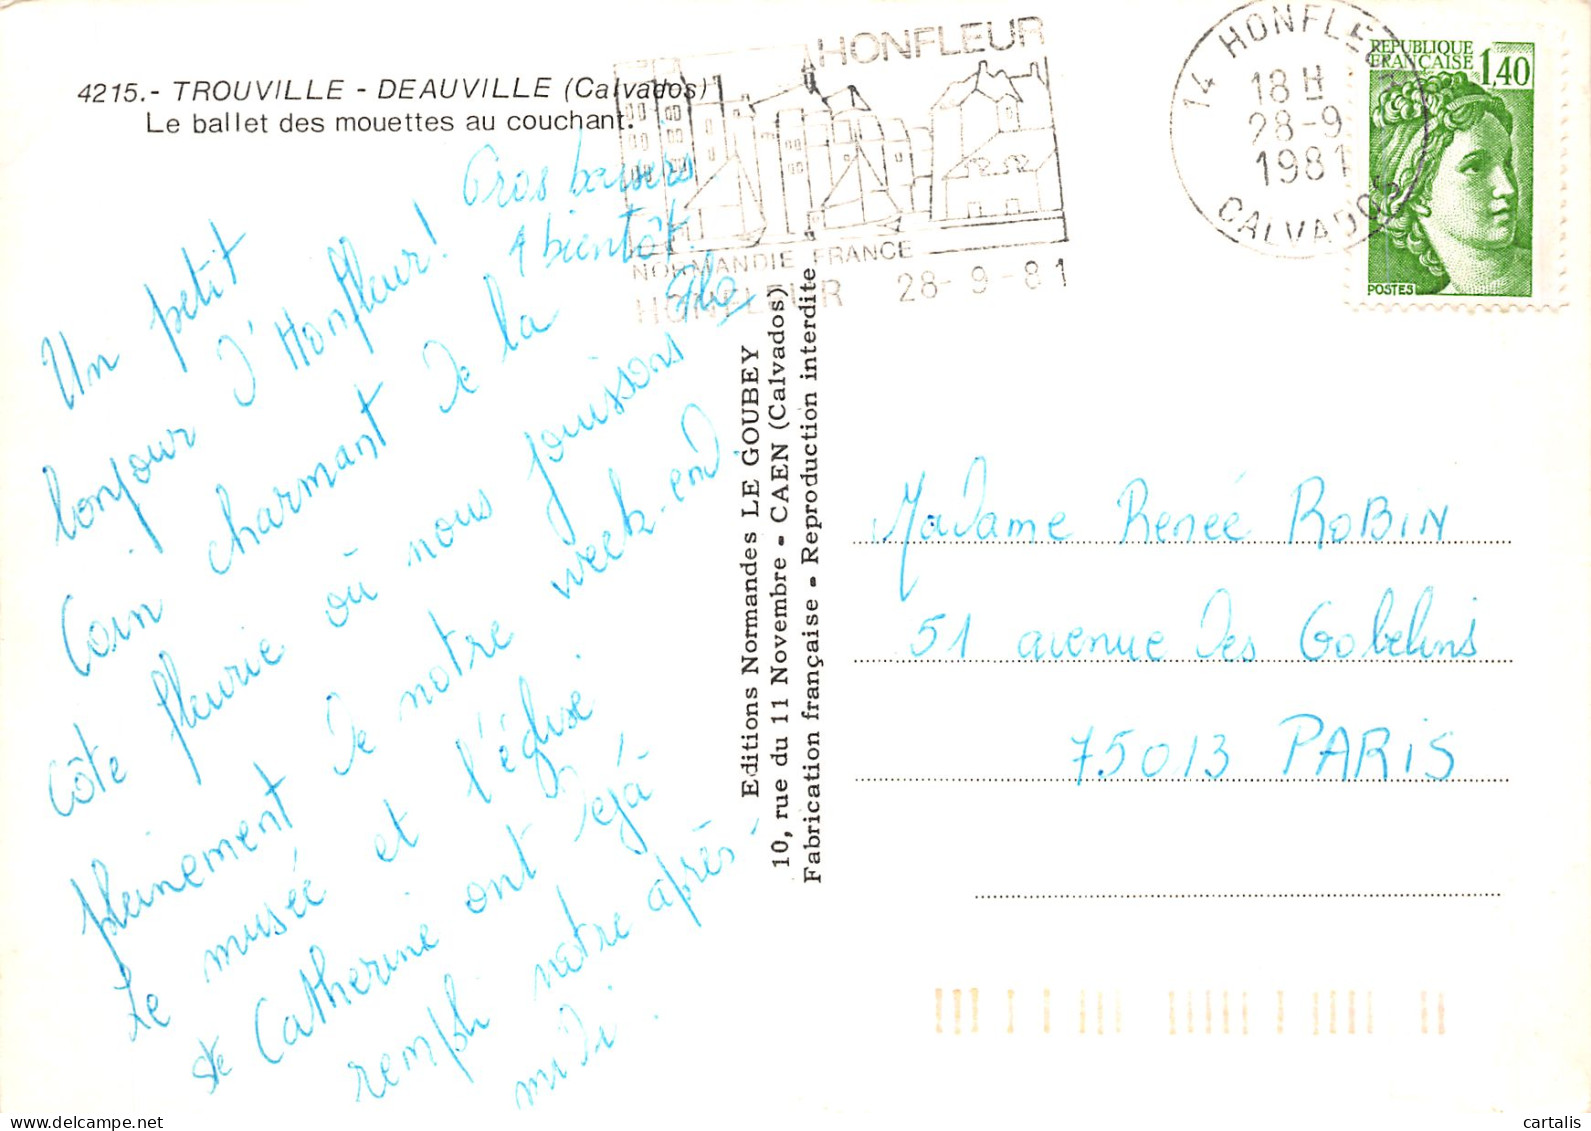 4215.- TROUVILLE - DEAUVILLE (Calvados)
Le ballet des mouettes au couchant.
HONFLEUR
NORMANDIE FRANCE
HONFLEUR 28-9-81
14 HONFLEUR
18 H
28-9
1981
CALVADOS
REPUBLIQUE
FRANÇAISE
1,40
POSTES
Un petit
bonjour d'Honfleur!
Coin charmant de la
côte fleurie où nous jouissons
pleinement de notre week-end.
Le musée et l'église
Ste Catherine ont déjà
rempli notre après-
midi.
Gros baisers
A bientôt.
Editions Normandes LE GOUBEY
10, rue du 11 Novembre - CAEN (Calvados)
Fabrication française - Reproduction interdite
Madame Renée ROBIN
51 avenue des Gobelins
75013 PARIS
cartalis